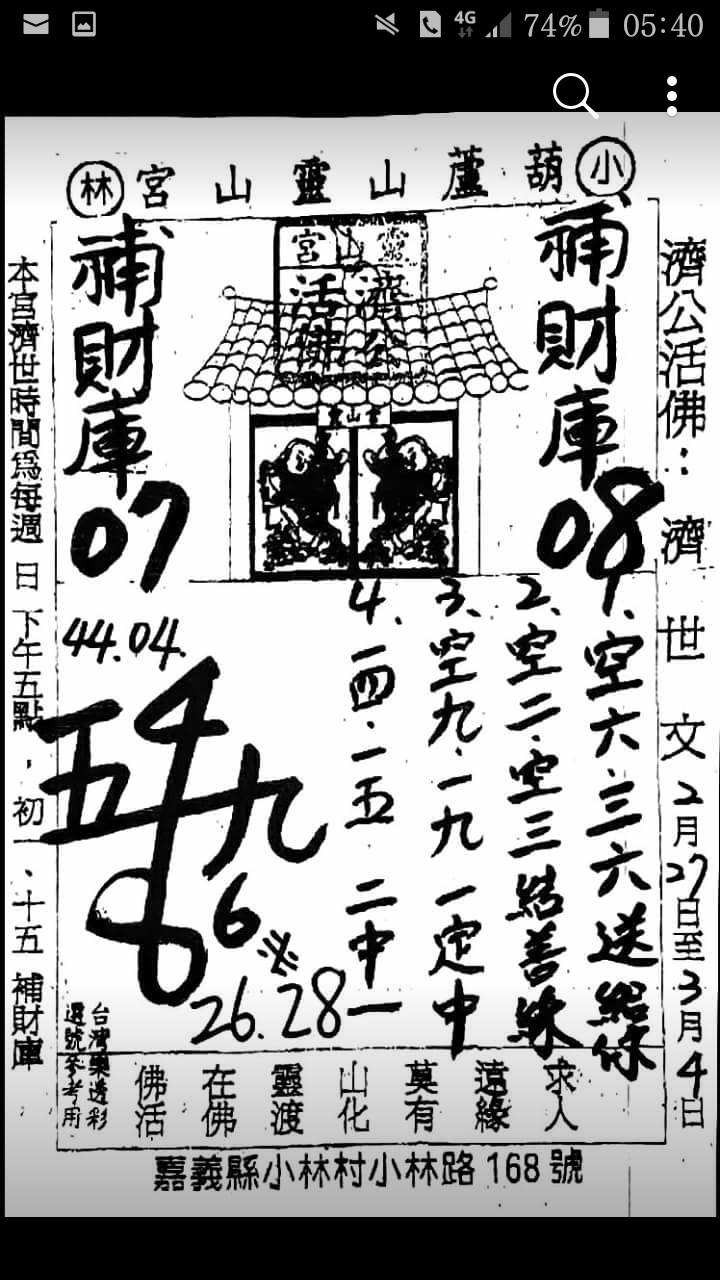 74% 05:40
4G
小葫蘆山靈山宮林
濟公活佛：濟世文2月27日至3月4日
補財庫
08
靈山宮
濟公
活佛
靈山宮
補財庫
07
1、空六、三六送給你
2、空二、空三結善緣
3、空九、一九一定中
4、一四、一五二中一
44.04.
五
九
6
必
26.28
求人
遠緣
莫有
山化
靈渡
在佛
佛活
台灣樂透彩
選號參考用
本宮濟世時間為每週日下午五點，初一、十五補財庫
嘉義縣小林村小林路168號